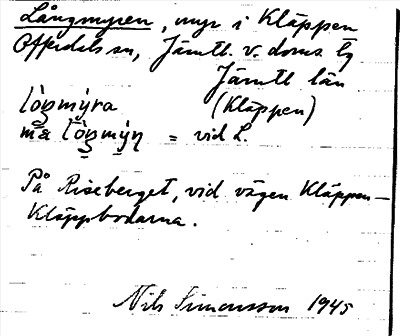 Långmyren, myr i Kläppen
Offerdals sn, Jämtl. v. doms lg
Jämtl län
lòŋmýra (Kläppen)
mæ lòŋmýṇ = vid L.
På Riseberget, vid vägen Kläppen-
Kläppbodarna.
Nils Simonsson 1945